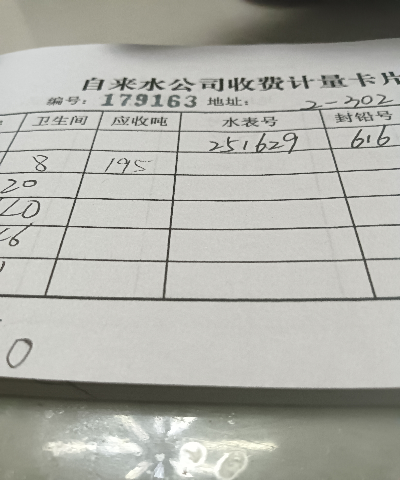 自来水公司收费计量卡片
编号: 179163 地址: 2-302
卫生间 应收吨 水表号 封铅号
251629 616
8 195
20